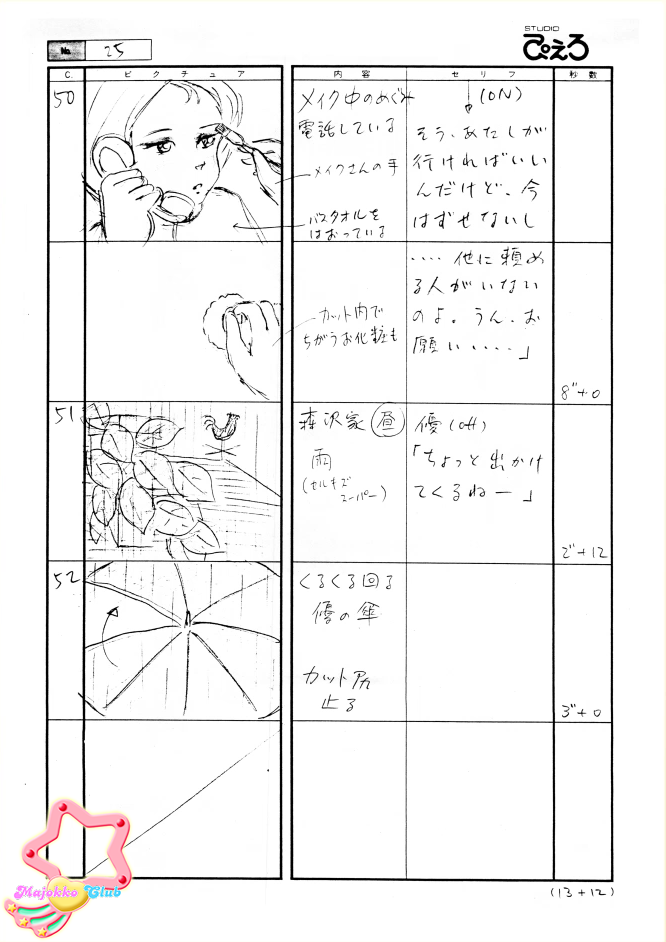 No. 25
STUDIO
ぴえろ
C. ピクチュア 内容 セリフ 秒数
50
メイク中のめぐみ
電話している
メイクさんの手
バスタオルを
はおっている
(ON)
そう、あたしが
行ければいい
んだけど、今
はずせないし
‥‥他に頼め
る人がいない
のよ。うん、お
願い‥‥」
カット内で
ちがうお化粧も
8"+0
51
森沢家 昼
雨
(セルキズ
スーパー)
優(off)
「ちょっと出かけ
てくるねー」
2"+12
52
くるくる回る
優の傘
カット尻
止る
3"+0
Majokko Club
(13+12)